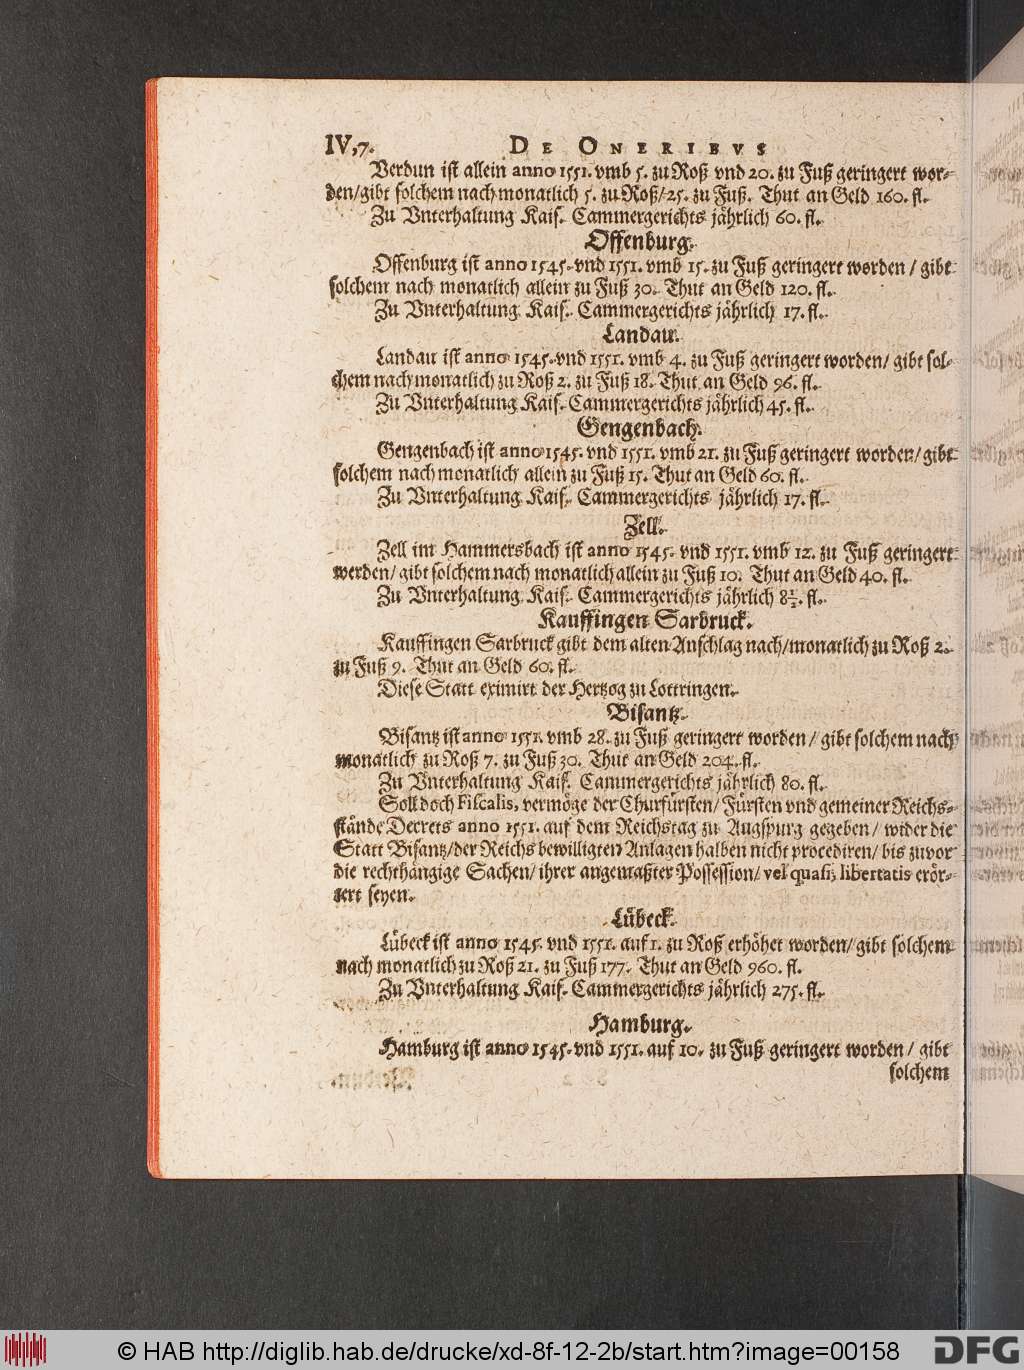 IV,7. DE ONERIBVS
Verdun ist allein anno 1551. vmb 5. zu Roß vnd 20. zu Fuß geringert wor-
den/gibt solchem nach monatlich 5. zu Roß/25. zu Fuß. Thut an Geld 160. fl.
Zu Vnterhaltung Kais. Cammergerichts jährlich 60. fl.
Offenburg.
Offenburg ist anno 1545. vnd 1551. vmb 15. zu Fuß geringert worden / gibt
solchem nach monatlich allein zu Fuß 30. Thut an Geld 120. fl.
Zu Vnterhaltung Kais. Cammergerichts jährlich 17. fl.
Landau.
Landau ist anno 1545. vnd 1551. vmb 4. zu Fuß geringert worden/ gibt sol-
chem nach monatlich zu Roß 2. zu Fuß 18. Thut an Geld 96. fl.
Zu Vnterhaltung Kais. Cammergerichts jährlich 45. fl.
Gengenbach.
Gengenbach ist anno 1545. vnd 1551. vmb 21. zu Fuß geringert worden/ gibt
solchem nach monatlich allein zu Fuß 15. Thut an Geld 60. fl.
Zu Vnterhaltung Kais. Cammergerichts jährlich 17. fl.
Zell.
Zell im Hammersbach ist anno 1545. vnd 1551. vmb 12. zu Fuß geringert
werden/ gibt solchem nach monatlich allein zu Fuß 10. Thut an Geld 40. fl.
Zu Vnterhaltung Kais. Cammergerichts jährlich 8½. fl.
Kauffingen Sarbruck.
Kauffingen Sarbruck gibt dem alten Anschlag nach/monatlich zu Roß 2.
zu Fuß 9. Thut an Geld 60. fl.
Diese Statt eximirt der Hertzog zu Lottringen.
Bisantz.
Bisantz ist anno 1551. vmb 28. zu Fuß geringert worden / gibt solchem nach
monatlich zu Roß 7. zu Fuß 30. Thut an Geld 204. fl.
Zu Vnterhaltung Kais. Cammergerichts jährlich 80. fl.
Soll doch Fiscalis, vermöge der Churfürsten/ Fürsten vnd gemeiner Reichs-
stände Decrets anno 1551. auf dem Reichstag zu Augspurg gegeben/ wider die
Statt Bisantz/der Reichs bewilligten Anlagen halben nicht procediren/ bis zuvor
die rechthängige Sachen/ ihrer angemaßter Possession/ vel quasi, libertatis erör-
tert seyen.
Lübeck.
Lübeck ist anno 1545. vnd 1551. auf 1. zu Roß erhöhet worden/ gibt solchem
nach monatlich zu Roß 21. zu Fuß 177. Thut an Geld 960. fl.
Zu Vnterhaltung Kais. Cammergerichts jährlich 275. fl.
Hamburg.
Hamburg ist anno 1545. vnd 1551. auf 10. zu Fuß geringert worden / gibt
solchem
© HAB http://diglib.hab.de/drucke/xd-8f-12-2b/start.htm?image=00158
DFG